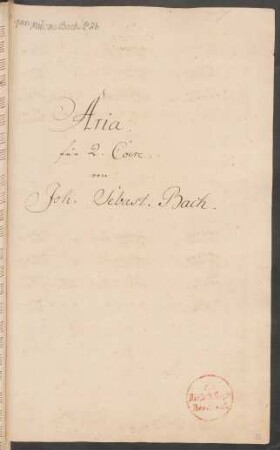 Mus. ms. Bach P 26
Aria.
für 2. Cori.
von
Joh. Sebast. Bach.